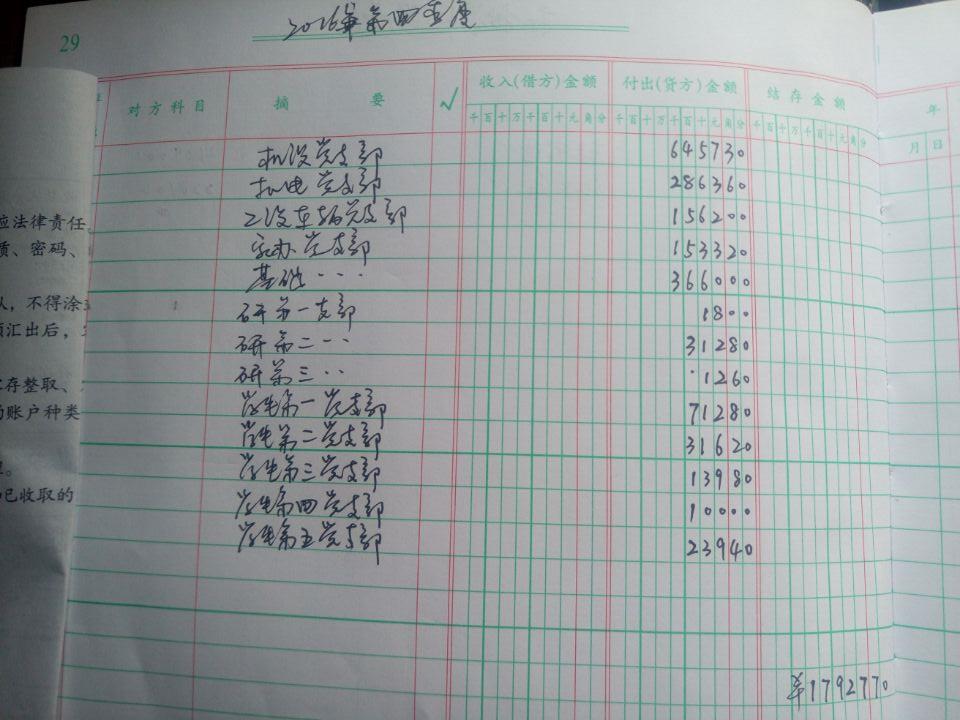 2016年第四季度
29
对方科目 摘要 √ 收入(借方)金额 付出(贷方)金额 结存金额 年
千百十万千百十元角分 千百十万千百十元角分 千百十万千百十元角分 月 日
机设党支部 645730
机电党支部 286360
工设车辆党支部 156200
家办党支部 153320
基础、、、 366000
研第一支部 1800
研第二、、 31280
研第三、、 1260
学生第一党支部 71280
学生第二党支部 31620
学生第三党支部 13980
学生第四党支部 10000
学生第五党支部 23940
¥1792770
应法律责任
质、密码、
人，不得涂
额汇出后，
存整取、
的账户种类
已收取的